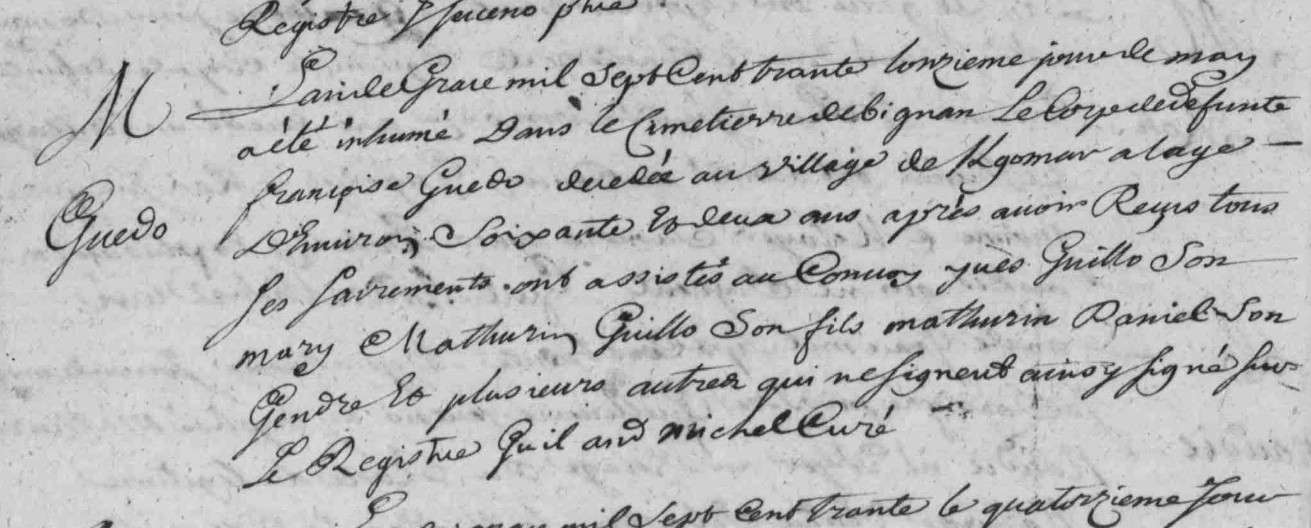 Registre
M
L'an de Grace mil Sept Cent trante l'onzieme jour de may
a été inhumé Dans le Cimetierre de bignan Le Corps de defunte
françoise Guedo decedée au village de Kgomar a l'age —
Guedo
D'Environ Soixante Et deux ans aprés avoir Reçus tous
ses sacrements. ont assistés au Convoy yves Guillo Son
mary Mathurin Guillo Son fils mathurin Daniel Son
Gendre Et plusieurs autres qui ne signent ainsy signé sur
Le Registre michel Curé
mil Sept Cent trante le quatorzieme Jour